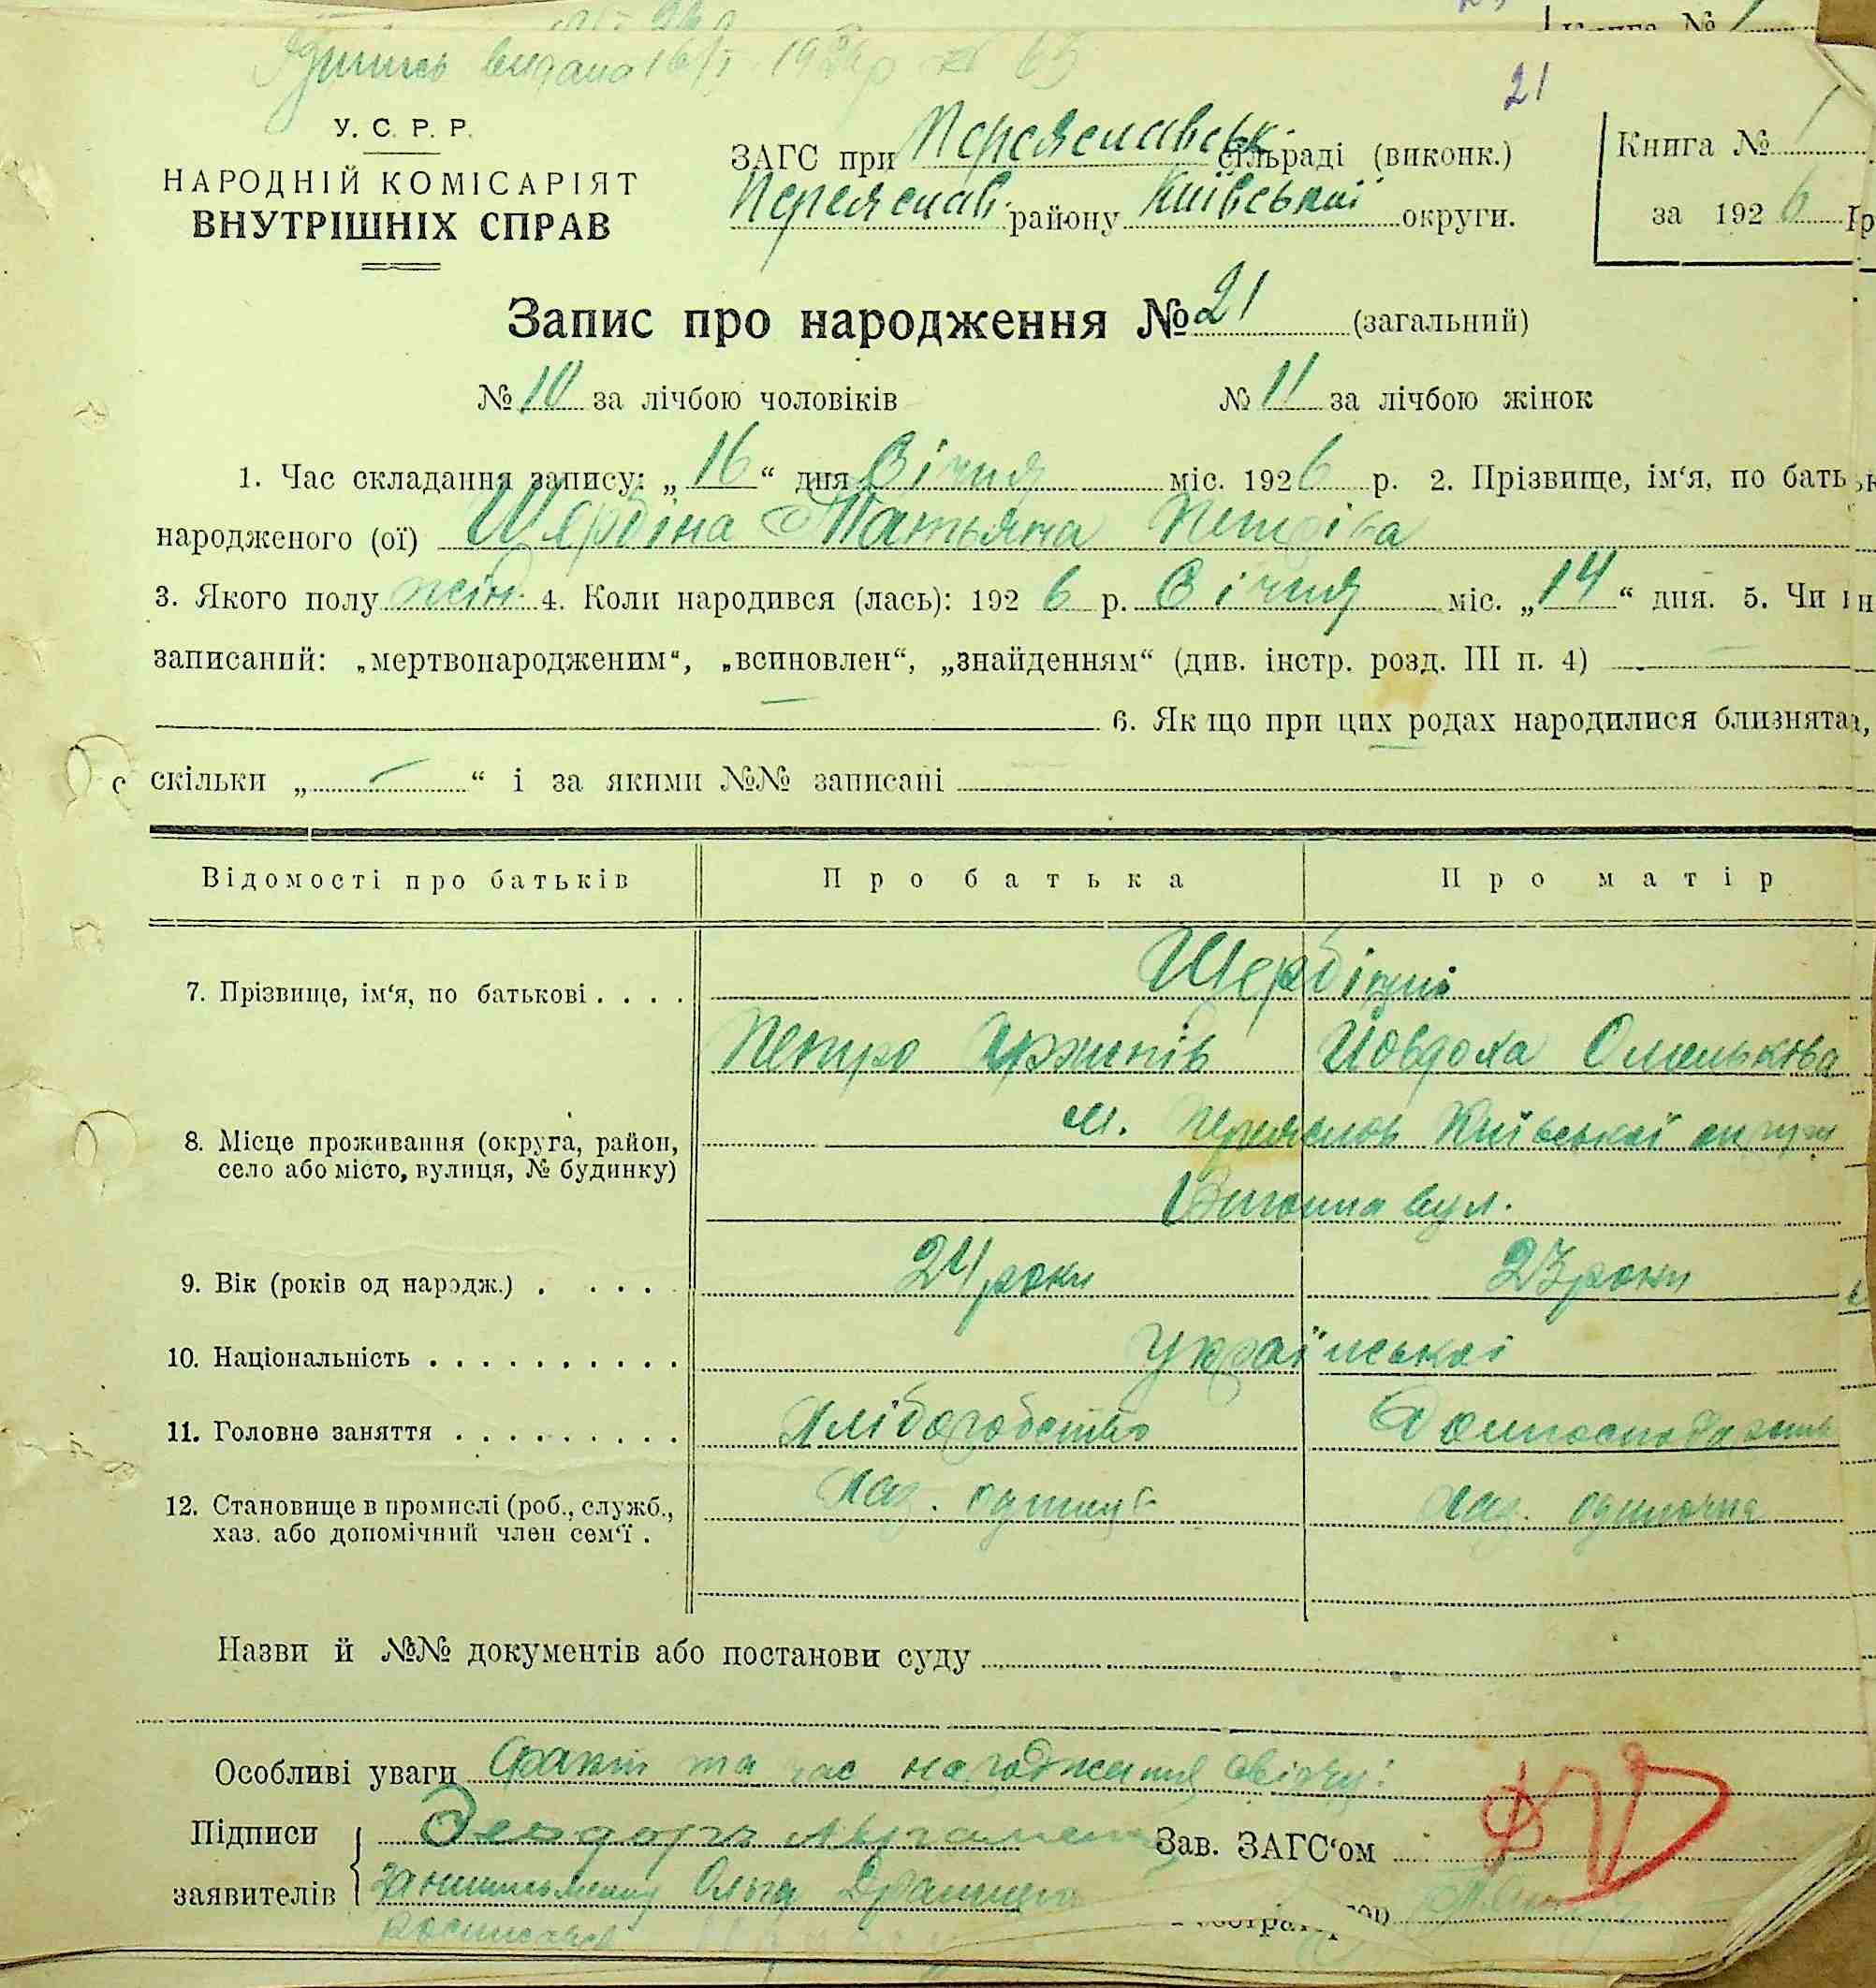 21
Книга №
У. С. Р. Р.
НАРОДНІЙ КОМІСАРІЯТ
ВНУТРІШНІХ СПРАВ
ЗАГС при Переяславськ. сільраді (виконк.)
Переяслав. району Київської округи.
Книга № 1
за 1926
Запис про народження № 21 (загальний)
№ 10 за лічбою чоловіків № 11 за лічбою жінок
1. Час складання запису: „16“ дня Січня міс. 1926 р. 2. Прізвище, ім‘я, по бать
народженого (ої) Щербіна Татьяна Петріва
3. Якого полу жін. 4. Коли народився (лась): 1926 р. Січня міс. „14“ дня. 5. Чи
записаний: „мертвонародженим“, „всиновлен“, „знайденням“ (див. інстр. розд. III п. 4) —
— 6. Як що при цих родах народилися близнята,
скільки „—“ і за якими №№ записані
Відомості про батьків Про батька Про матір
7. Прізвище, ім‘я, по батькові . . . . Щербіни
Петро Йовдоха
8. Місце проживання (округа, район, м. Переяслов Київської округи
село або місто, вулиця, № будинку) вул.
9. Вік (років од народж.) . . . . . 24 роки 23 роки
10. Національність . . . . . . . . . . Української
11. Головне заняття . . . . . . . . . Хліборобство
12. Становище в промислі (роб., служб., хаз. хаз. одиночка
хаз. або допомічний член сем‘ї .
Назви й №№ документів або постанови суду
Особливі уваги Факт та час народження свірен:
Підписи Зав. ЗАГС‘ом
заявителів Ольга